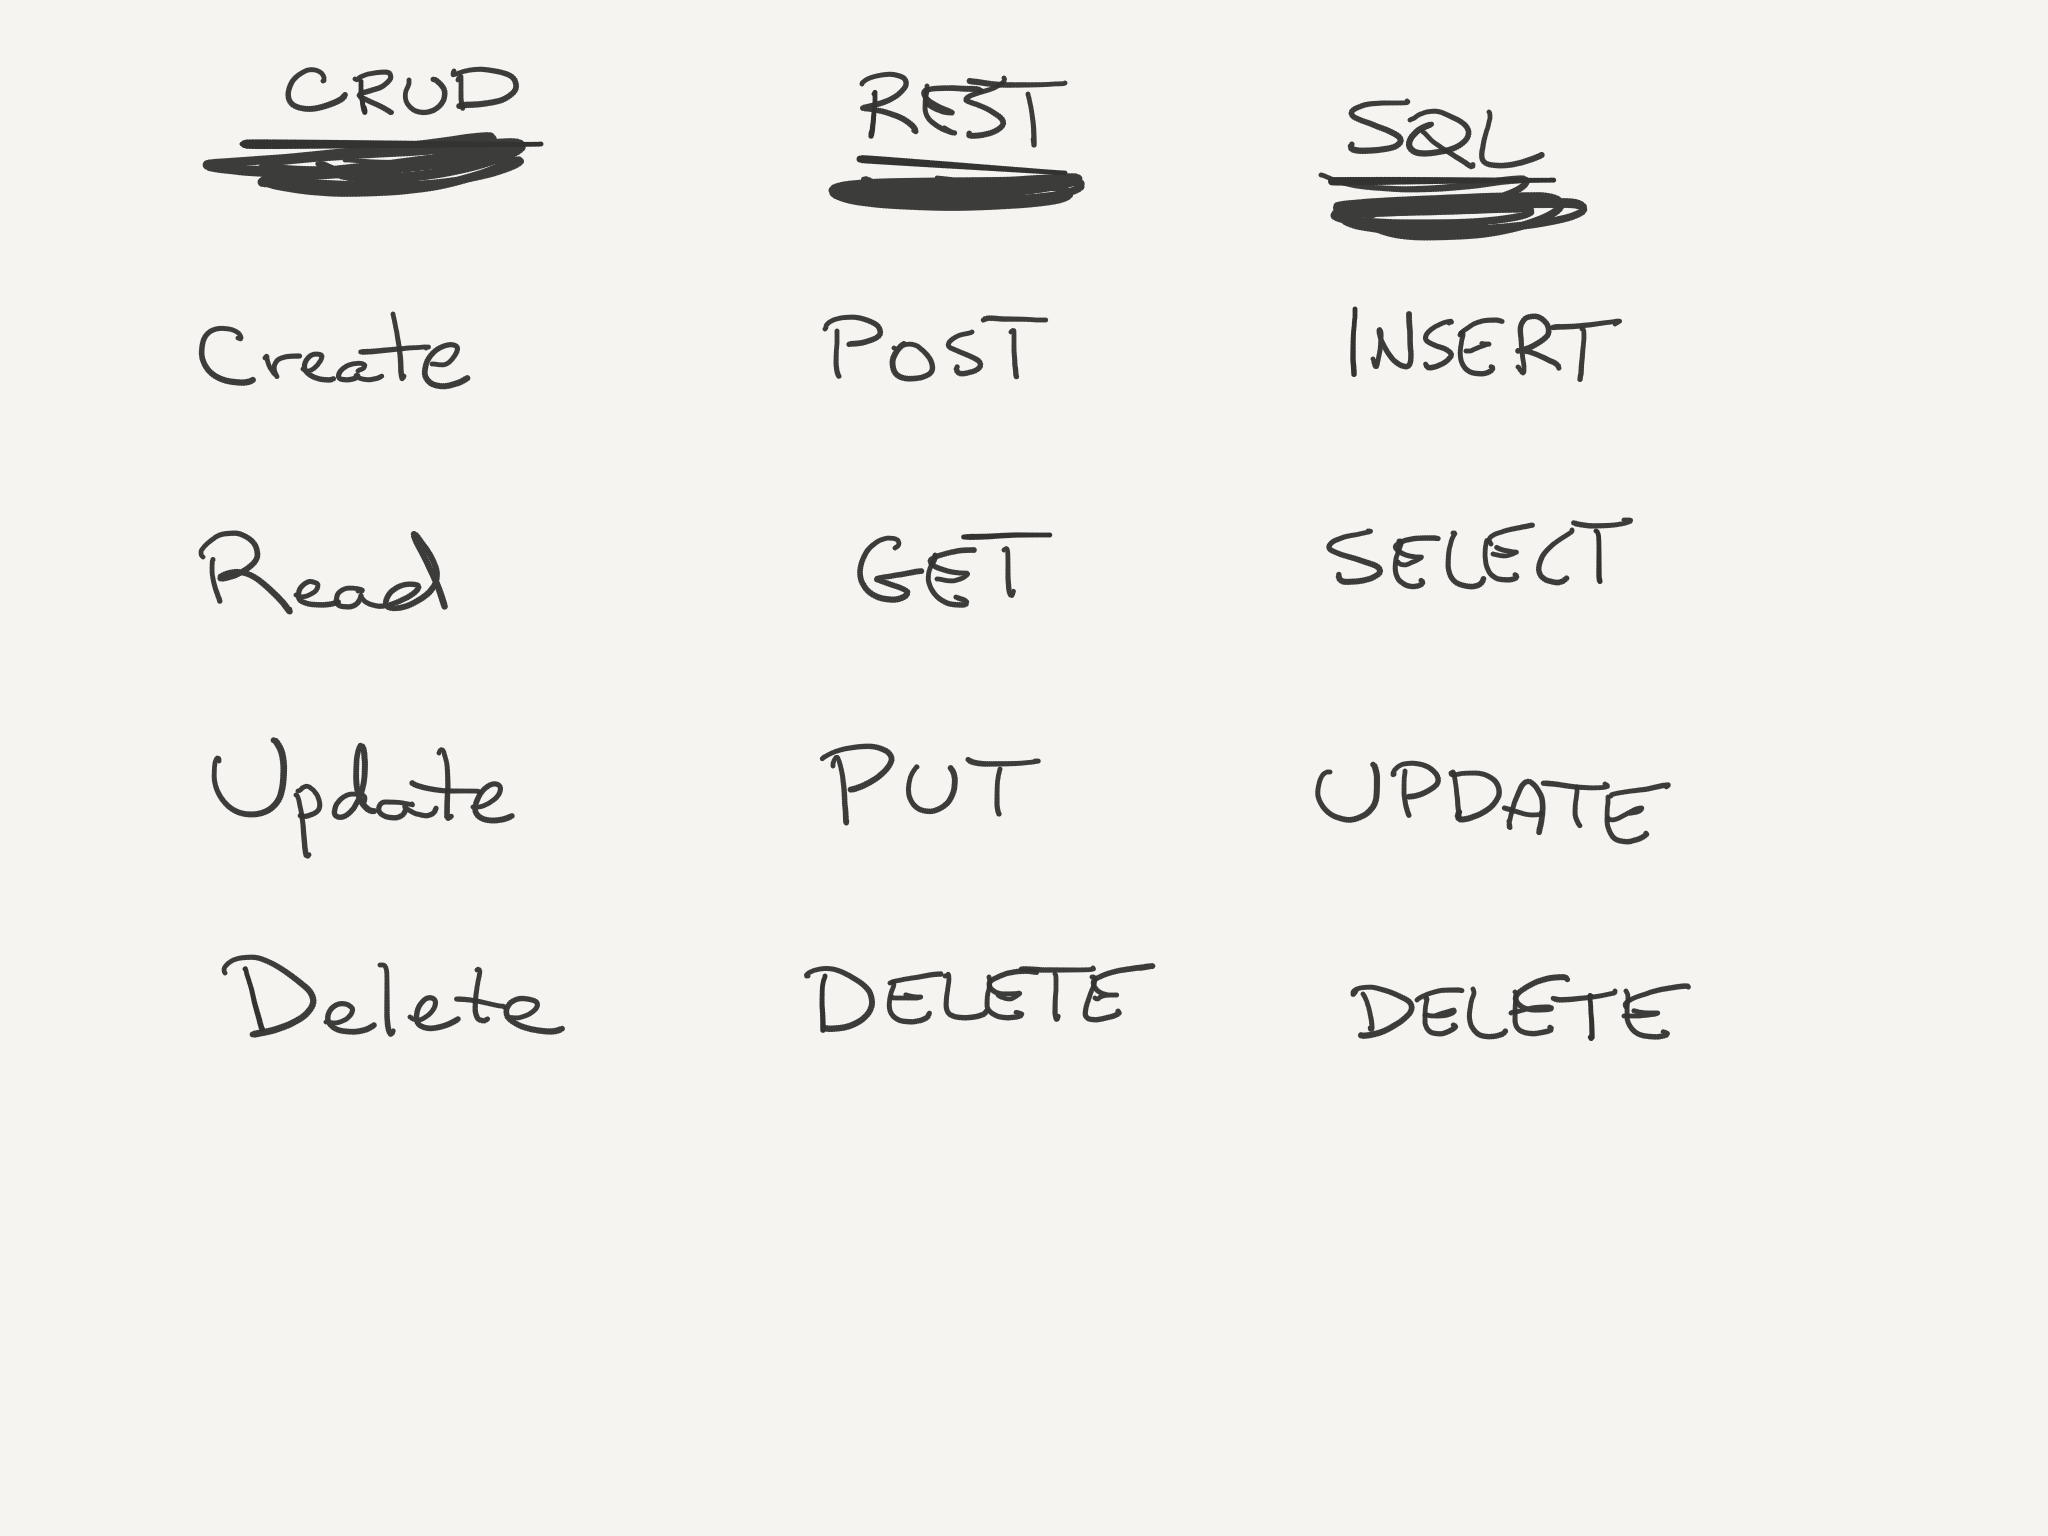 CRUD REST SQL
Create POST INSERT
Read GET SELECT
Update PUT UPDATE
Delete DELETE DELETE